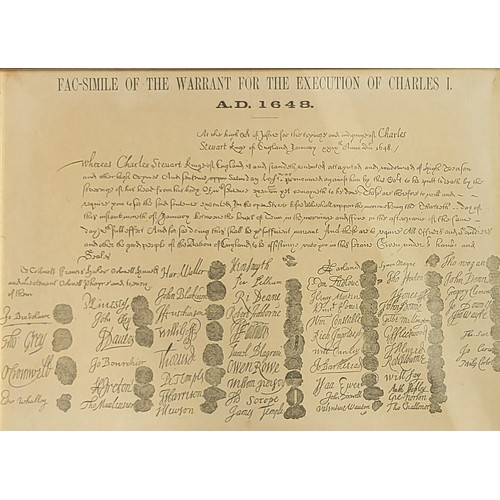 FAC-SIMILE OF THE WARRANT FOR THE EXECUTION OF CHARLES I.
A.D. 1648.
At the high Co of Justice for the tryinge and iudginge of Charles
Steuart Kinge of England January xxixth Anno Dm 1648./
Whereas Charles Steuart Kinge of England is and standeth convicted attaynted and condemned of high Treason
and other high Crymes And sentence uppon Saturday last was pronounced against him by this Cort to be putt to death by the
severinge of his head from his body Of wch sentence execucon yet remayneth to be done These are therefore to will and
require you to see the said sentence executed In the open Streete before Whitehall uppon the morrowe being the Thirtieth day of
this instante moneth of January betweene the houres of Tenn in the morninge and Five in the afternoone of the same
day wth full effect And for soe doing this shall be yor sufficient warrant And these are to require All Officers and Souldiers
and other the good people of this Nation of England to be assistinge unto you in this service Given under our hands and
Seales
To Collonell Francis Hacker Colonell Huncks
and Lieutenant Colonell Phayre and to every
of them
Jo Bradshawe
Tho Grey
O Cromwell
Edw Whalley
M Livesey
John Okey
J Danvers
Jo Bourchier
H Ireton
Tho Mauleverer
Har Waller
John Blakiston
J Hutchinson
Willi Goff
Tho Pride
Pe Temple
T Harrison
J Hewson
Hen Smyth
Per Pelham
Ri Deane
Robert Tichborne
H Edwardes
Daniel Blagrave
Owen Rowe
William Purefoy
Ad Scrope
James Temple
A Garland
Edm Ludlowe
Henry Marten
Vinct Potter
Wm Constable
Rich Ingoldesby
Will Cawley
Jo Barkestead
Isaa Ewer
John Dixwell
Valentine Wauton
Symon Mayne
Tho Horton
J Jones
John Penne
Gilbt Millington
G Fleetwood
J Alured
Robt Lilburne
Will Say
Anth Stapley
Gre Norton
Tho Challoner
Tho Wogan
John Downes
Gregory Clement
Tho Wayte
Tho Scot
Jo Carew
Miles Corbet